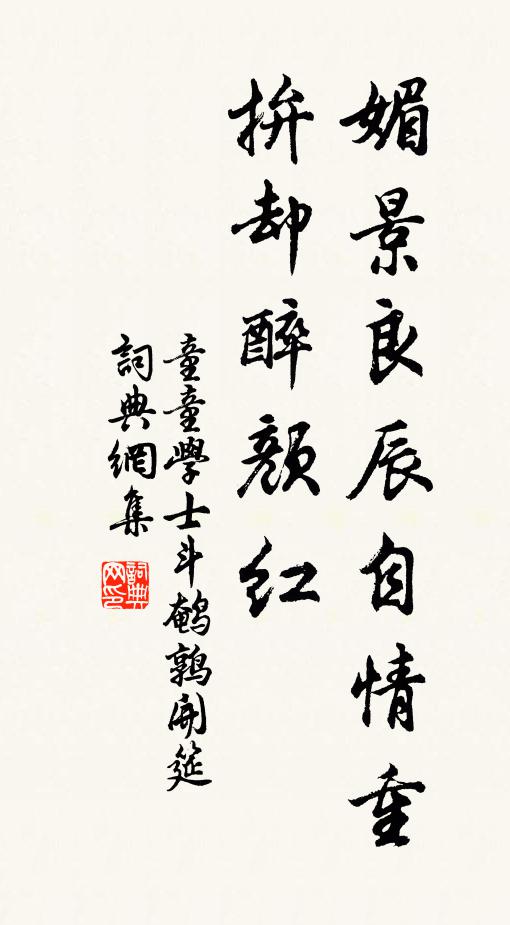 媚景良辰自情重
拚却醉颜红
童童學士斗鹌鹑開筵
詞典網集
詞典网印